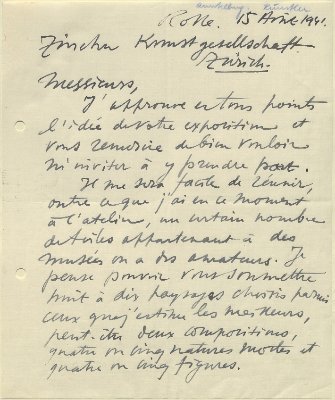 Rolle. 15 Août 1941.
Zürcher Kunstgesellschaft
Zürich.
Messieurs,
J'approuve en tous points
l'idée de votre exposition et
vous remercie de bien vouloir
m'inviter à y prendre part.
Il me sera facile de réunir,
outre ce que j'ai en ce moment
à l'atelier, un certain nombre
de toiles appartenant à des
musées ou a des amateurs. Je
pense pouvoir vous soumettre
huit à dix paysages choisis parmi
ceux que j'estime les meilleurs,
peut-être deux compositions,
quatre ou cinq natures mortes et
quatre ou cinq figures.